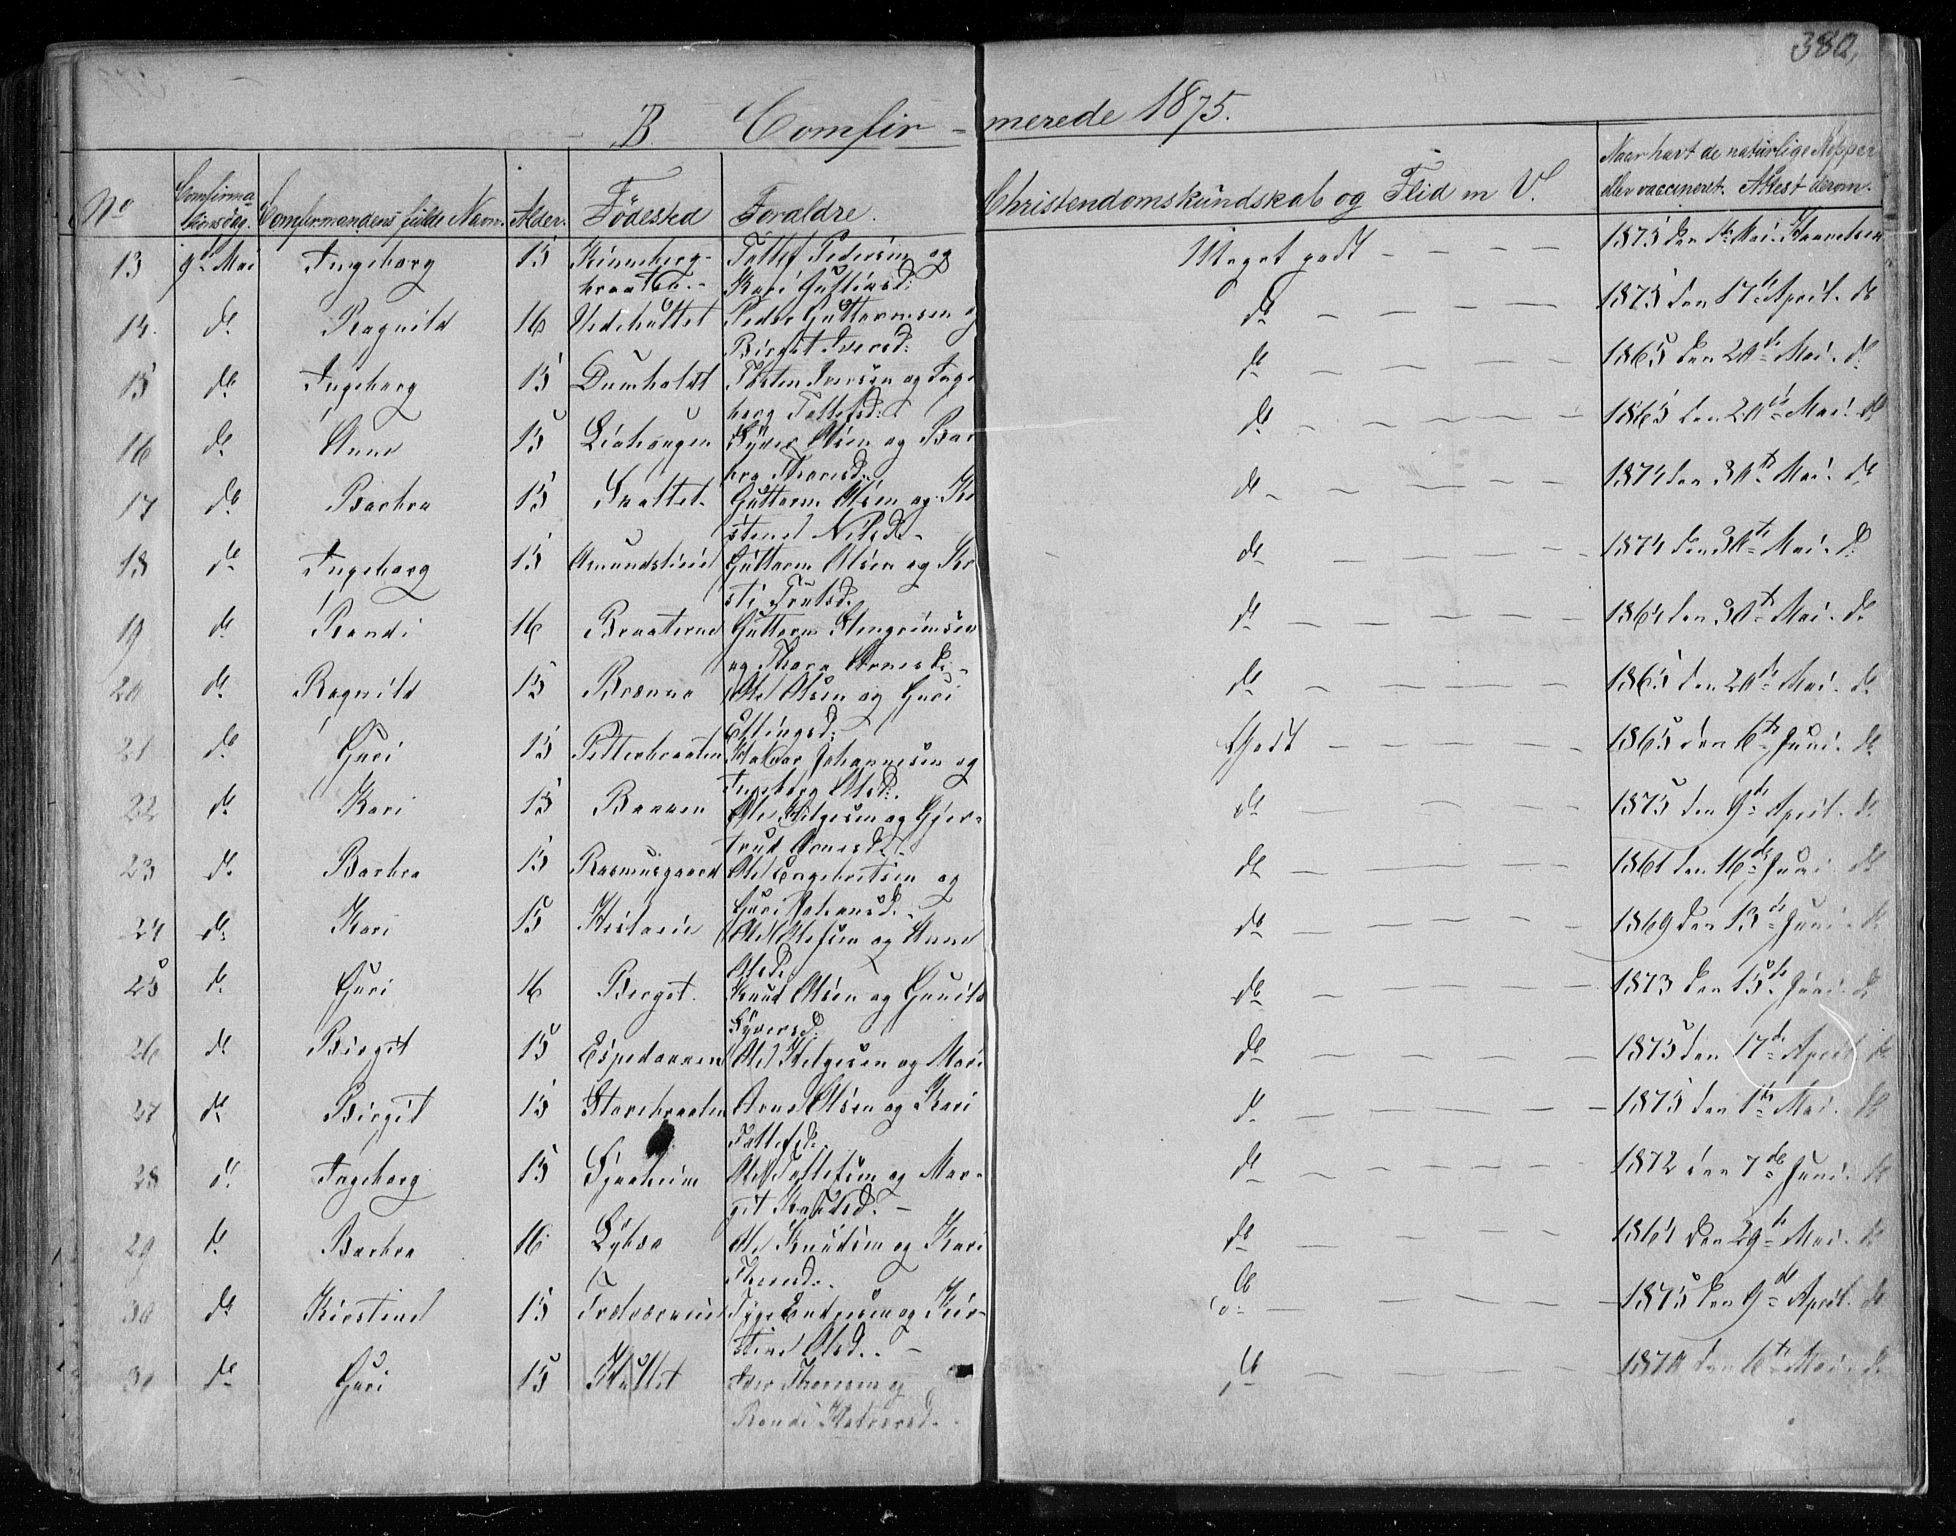 382.
B. Comfir- merede 1875.
No Comfirma- tionsdag. Comfirmandens fulde Navn. Alder. Födested Foraldre. Christendomskundskab og Flid m V. Naar havt de naturlige Kopper
eller vaccineret. Attest derom.
13 9de Mai Ingeborg 15 braaten. Tollef Pedersen og Kari Meget godt 1875 den Mai.
14. do Ragnild 16 Peder Guttormsen og Birgit Iversd: do 1875 den 17de April. do
15 do Ingeborg 15 Dumholdt Iversen og Inge borg Tollefsd: do 1865 den 20de Mai. do
16 do Anne 15 Liahaugen Syver Olsen og Bar bra Thoresd. do 1865 den 20de Mai. do
17 do Barbra 15 Guttorm Olsen og Ki stine Nilsd. do 1874 den 30te Mai. do
18 do Ingeborg 15 Guttorm Olsen og do 1874 den 30te Mai. do
19 do Randi 16 Braaterne Guttorm Stengrimsen og Thora Arnesd. do 1864 den 30te Mai. do
20 do Ragnild 15 Brænna Ole Olsen og Guri Ellingsd: do 1865 den 20de Mai. do
21 do Guri 15 Petterbraaten Halvor Johannesen og Ingeborg Olsd: Godt 1865 den 6te Juni. do
22 do Kari 15 Ole Helgesen og Gjer- trud Arnesd. do 1875 den 9de April. do
23 do Barbra 15 Rasmusgaard Ole Engebretsen og Guri Johansd. do 1861 den 16de Juni do
24 do Kari 15 Ole Olsen og Anne Olsd. do 1869 den 13de Juni. do
25 do Guri 16 Berget. Knud Olsen og Gunild Syversd: do 1873 den 15de Juni. do
26 do Birgit 15 Ole Helgesen og Mari do 1875 den 17de April do
27 do Birgit 15 Storebraaten Arne Olsen og Kari Tollefsd. do 1875 den 1te Mai. do
28 do Ingeborg 15 Ole Tollefsen og Mar- git Knudsd. do 1872 den 7de Juni. do
29 do Barbra 16 Ole Knudsen og Kari Thoresd. do 1864 den 29de Mai. do
30 do Kirstine 15 og Kir- stine Olsd. do 1875 den 9de April. do
30 do Guri 15 Hullet Iver Thoresen og Randi Halvorsd. do 1870 den 6te Mai. do